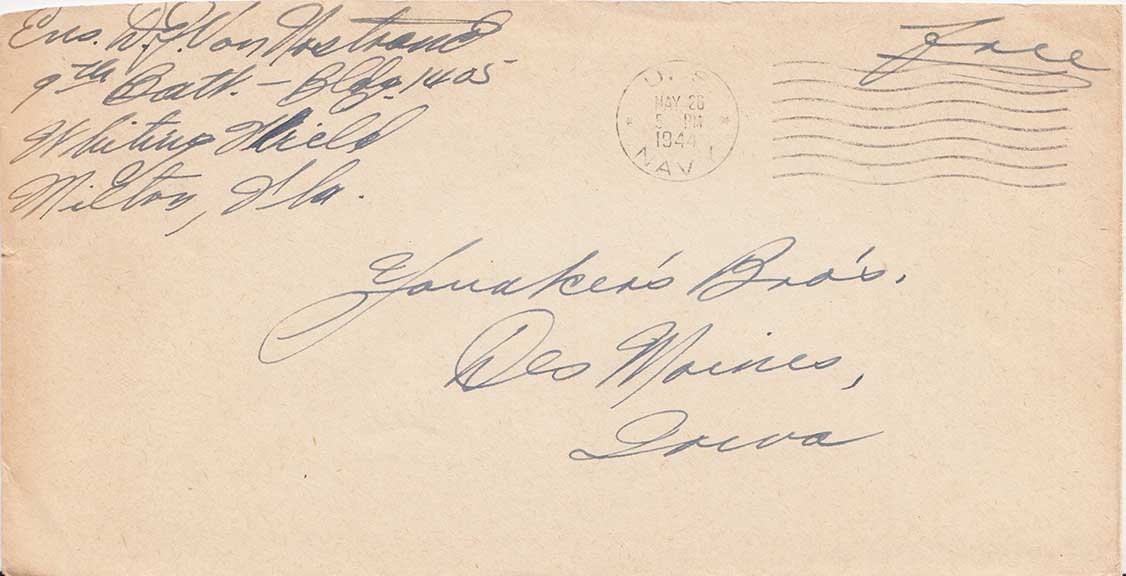 Ens. D.J. Von Nostrand
9th Batt. - Bldg. 1405
Whiting Field
Milton, Fla.
Free
U.S.
MAY 26
5 PM
1944
NAVY
Younker's Bro's.
Des Moines,
Iowa